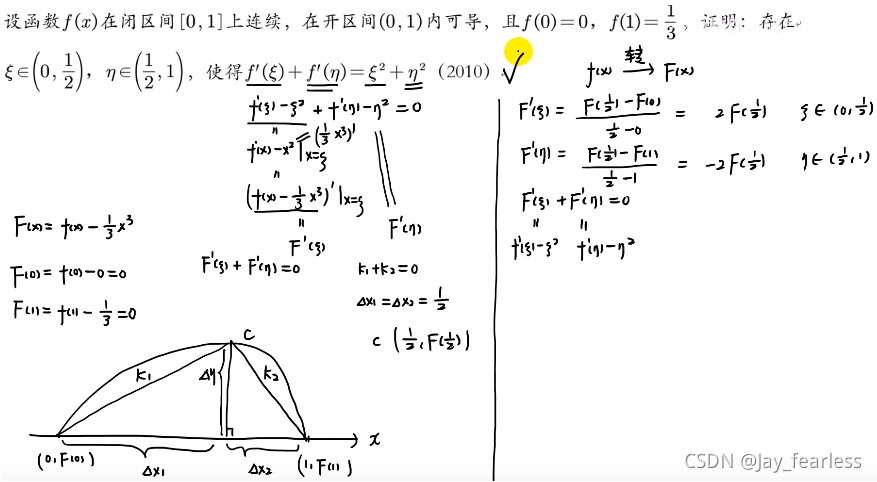 设函数f(x)在闭区间[0,1]上连续，在开区间(0,1)内可导，且f(0)=0，f(1)=1/3，证明：存在
ξ∈(0,1/2)，η∈(1/2,1)，使得f′(ξ)+f′(η)=ξ²+η²（2010）. √
f′(ξ)-ξ² + f′(η)-η² = 0
=
f′(x)-x²|x=ξ
= (1/3 x³)′
=
(f(x)-1/3 x³)′|x=ξ
=
F′(ξ)
F′(η)
F′(ξ)+F′(η)=0
k₁+k₂=0
Δx₁=Δx₂=1/2
C (1/2, F(1/2))
F(x)= f(x)-1/3 x³
F(0)= f(0)-0=0
F(1)= f(1)-1/3=0
C
k₁
Δy
k₂
x
(0,F(0))
Δx₁
Δx₂
(1,F(1))
f(x) 转 → F(x)
F′(ξ)= F(1/2)-F(0) / 1/2-0 = 2F(1/2) ξ∈(0,1/2)
F′(η)= F(1/2)-F(1) / 1/2-1 = -2F(1/2) η∈(1/2,1)
F′(ξ)+F′(η)=0
= =
f′(ξ)-ξ² f′(η)-η²
CSDN @Jay_fearless